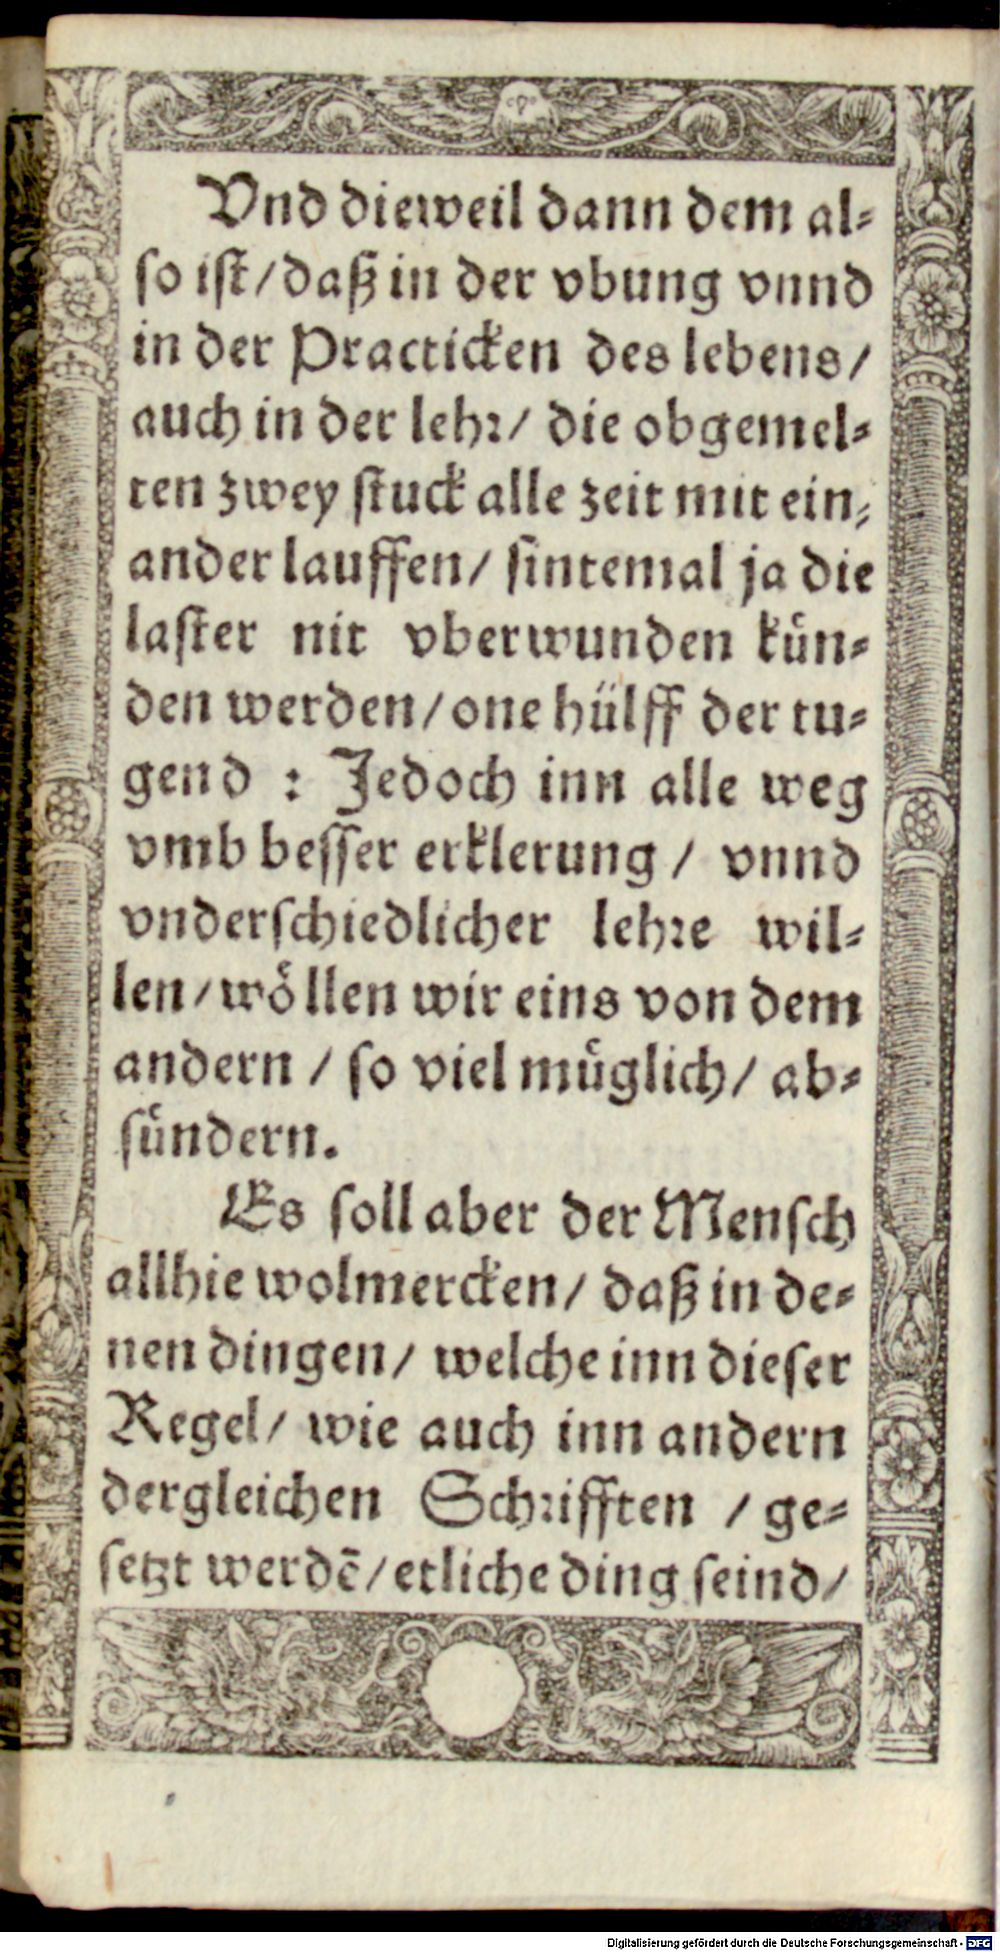 Vnd dieweil dann dem al⸗
so ist/daß in der vbung vnnd
in der Practicken des lebens/
auch in der lehr/ die obgemel⸗
ten zwey stuck alle zeit mit ein⸗
ander lauffen/ sintemal ja die
laster nit vberwunden kuͤn⸗
den werden/one huͤlff der tu⸗
gend : Jedoch inn alle weg
vmb besser erklerung / vnnd
vnderschiedlicher lehre wil⸗
len/woͤllen wir eins von dem
andern / so viel muͤglich/ ab⸗
suͤndern.
Es soll aber der Mensch
allhie wolmercken/ daß in de⸗
nen dingen/ welche inn dieser
Regel/ wie auch inn andern
dergleichen Schrifften / ge⸗
setzt werdē/etliche ding seind/
Digitalisierung gefördert durch die Deutsche Forschungsgemeinschaft - DFG